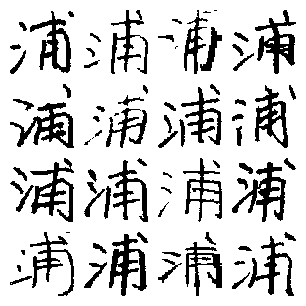 浦浦浦浦
浦浦浦浦
浦浦浦浦
浦浦浦浦